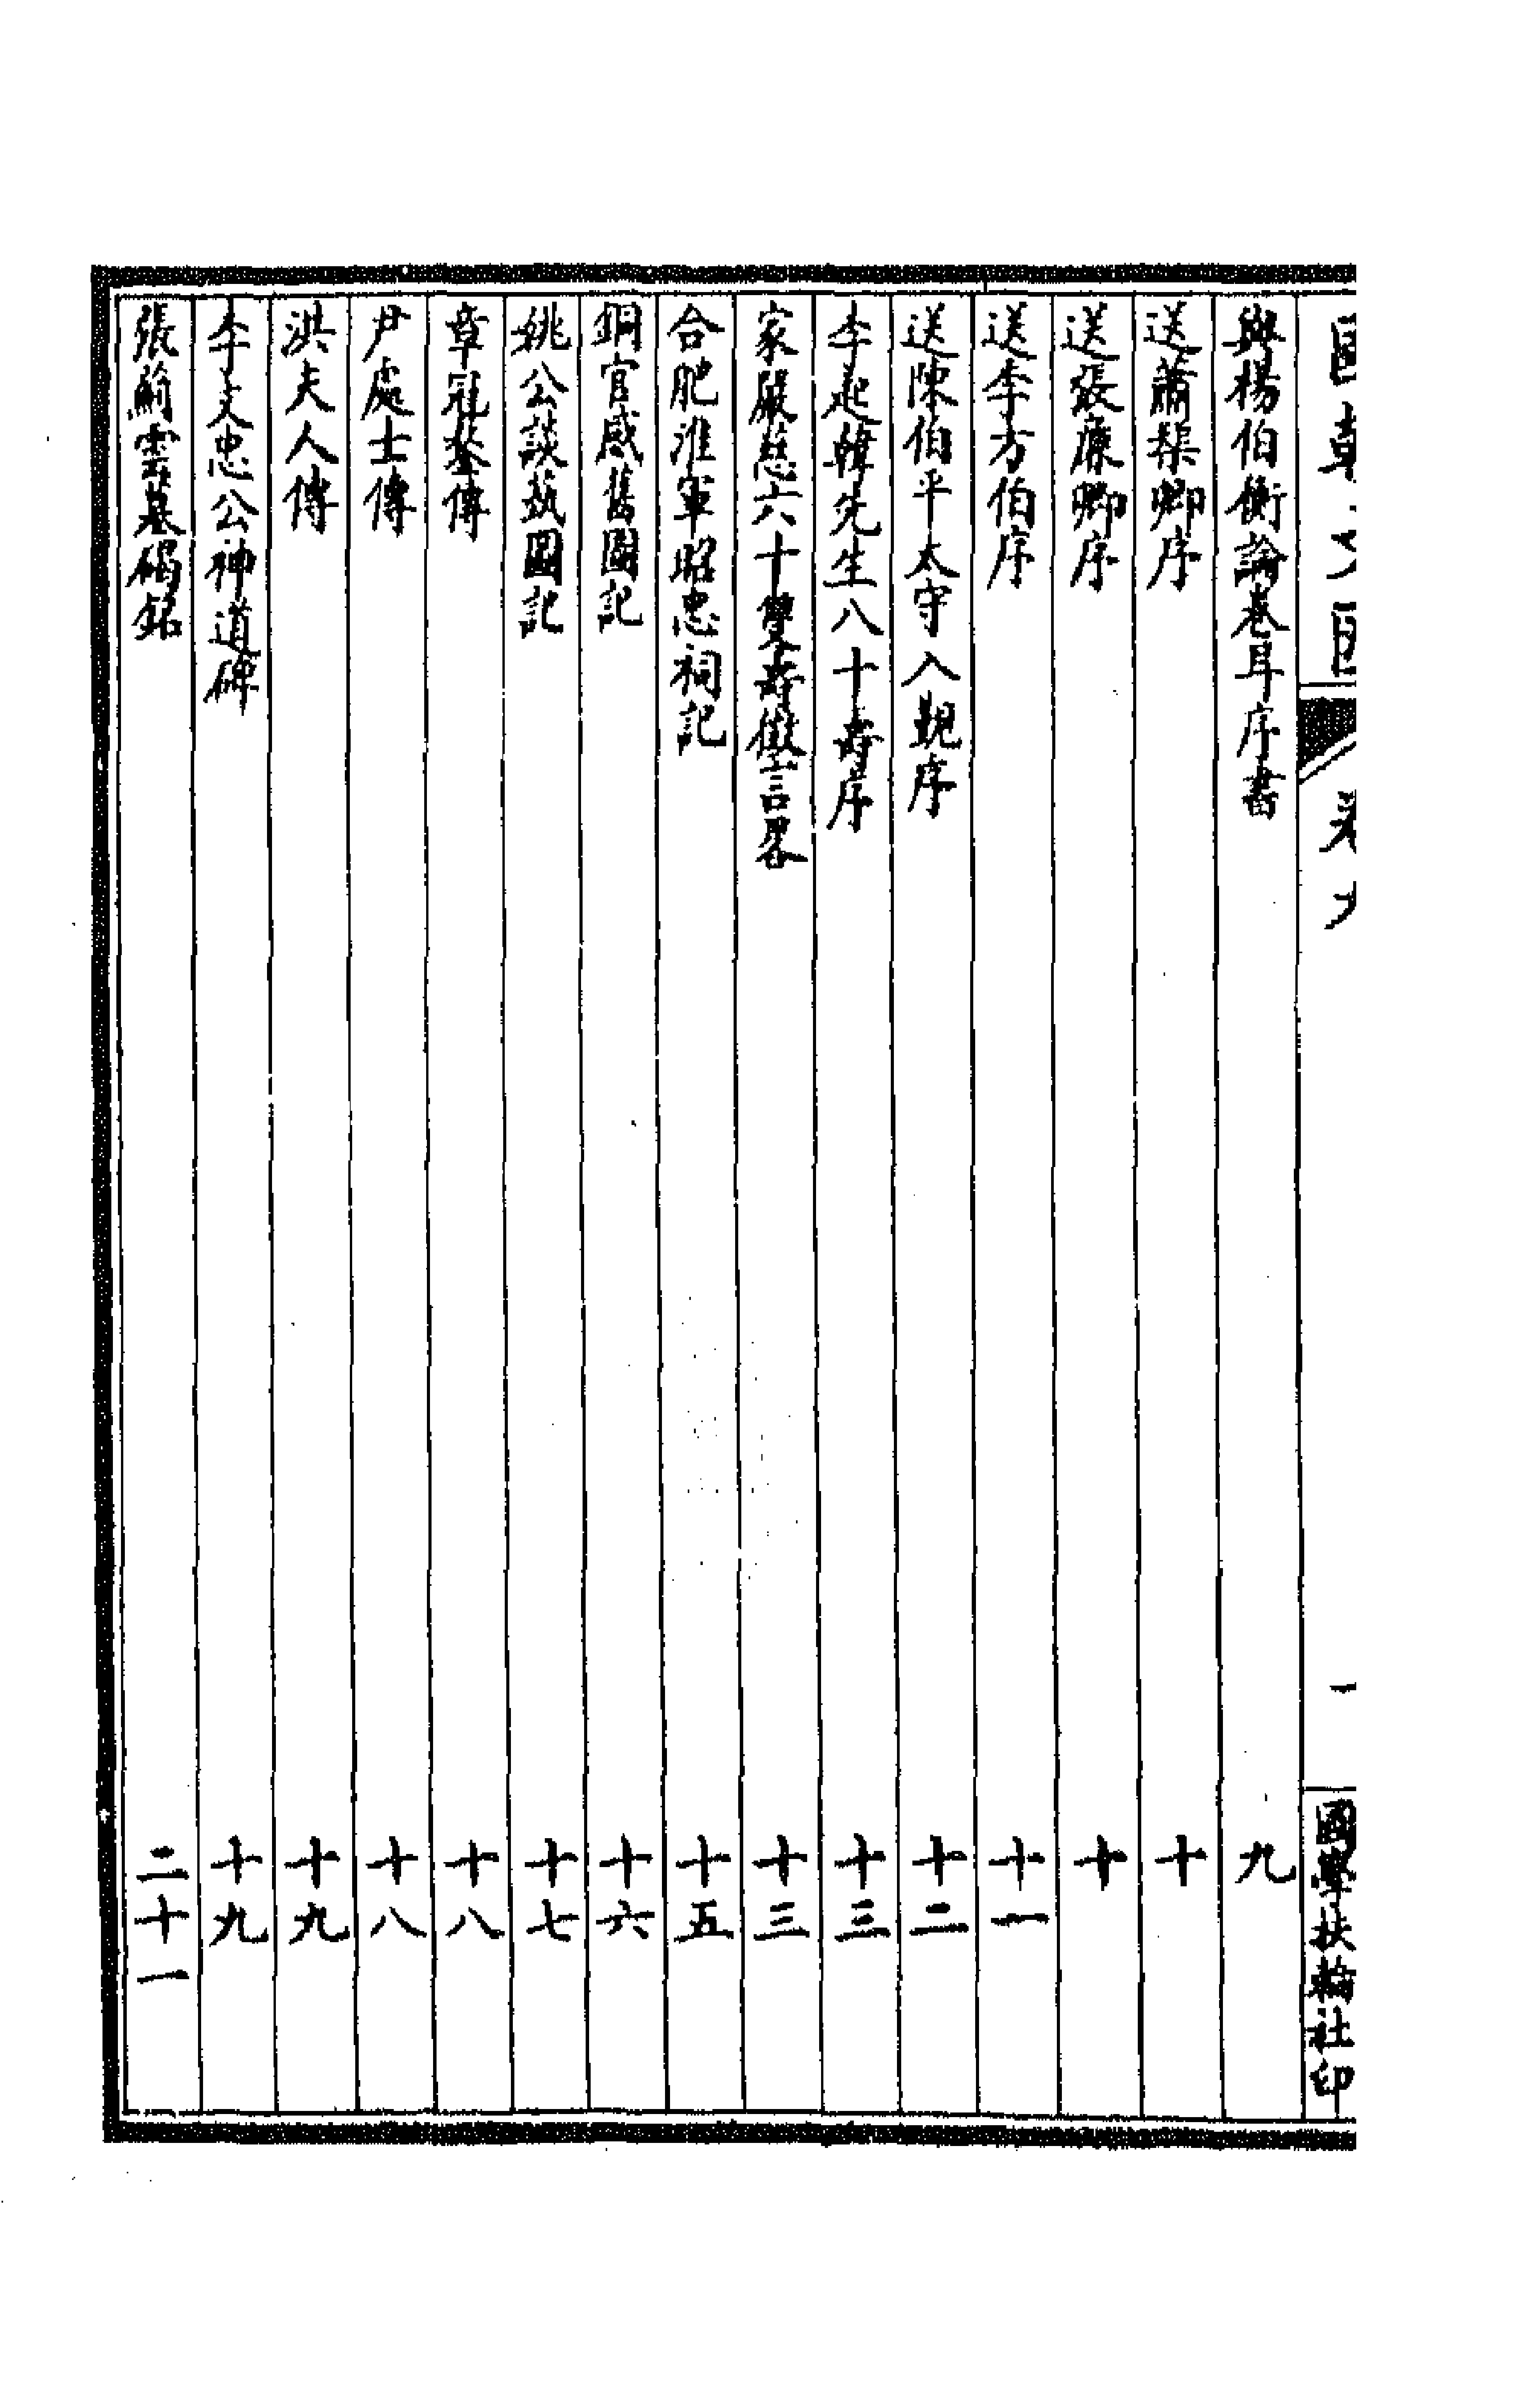 國朝文匯 卷 一 國學扶輪社印
與楊伯衡論卷耳序書 九
送蕭渠卿序 十
送張廉卿序 十
送李方伯序 十一
送陳伯平太守入覲序 十二
李起韓先生八十壽序 十三
家嚴慈六十雙壽徵言畧 十三
合肥淮軍昭忠祠記 十五
銅官感舊圖記 十六
姚公談藝圖記 十七
章冠鼇傳 十八
尹處士傳 十八
洪夫人傳 十九
李文忠公神道碑 十九
張蘜雲墓碣銘 二十一